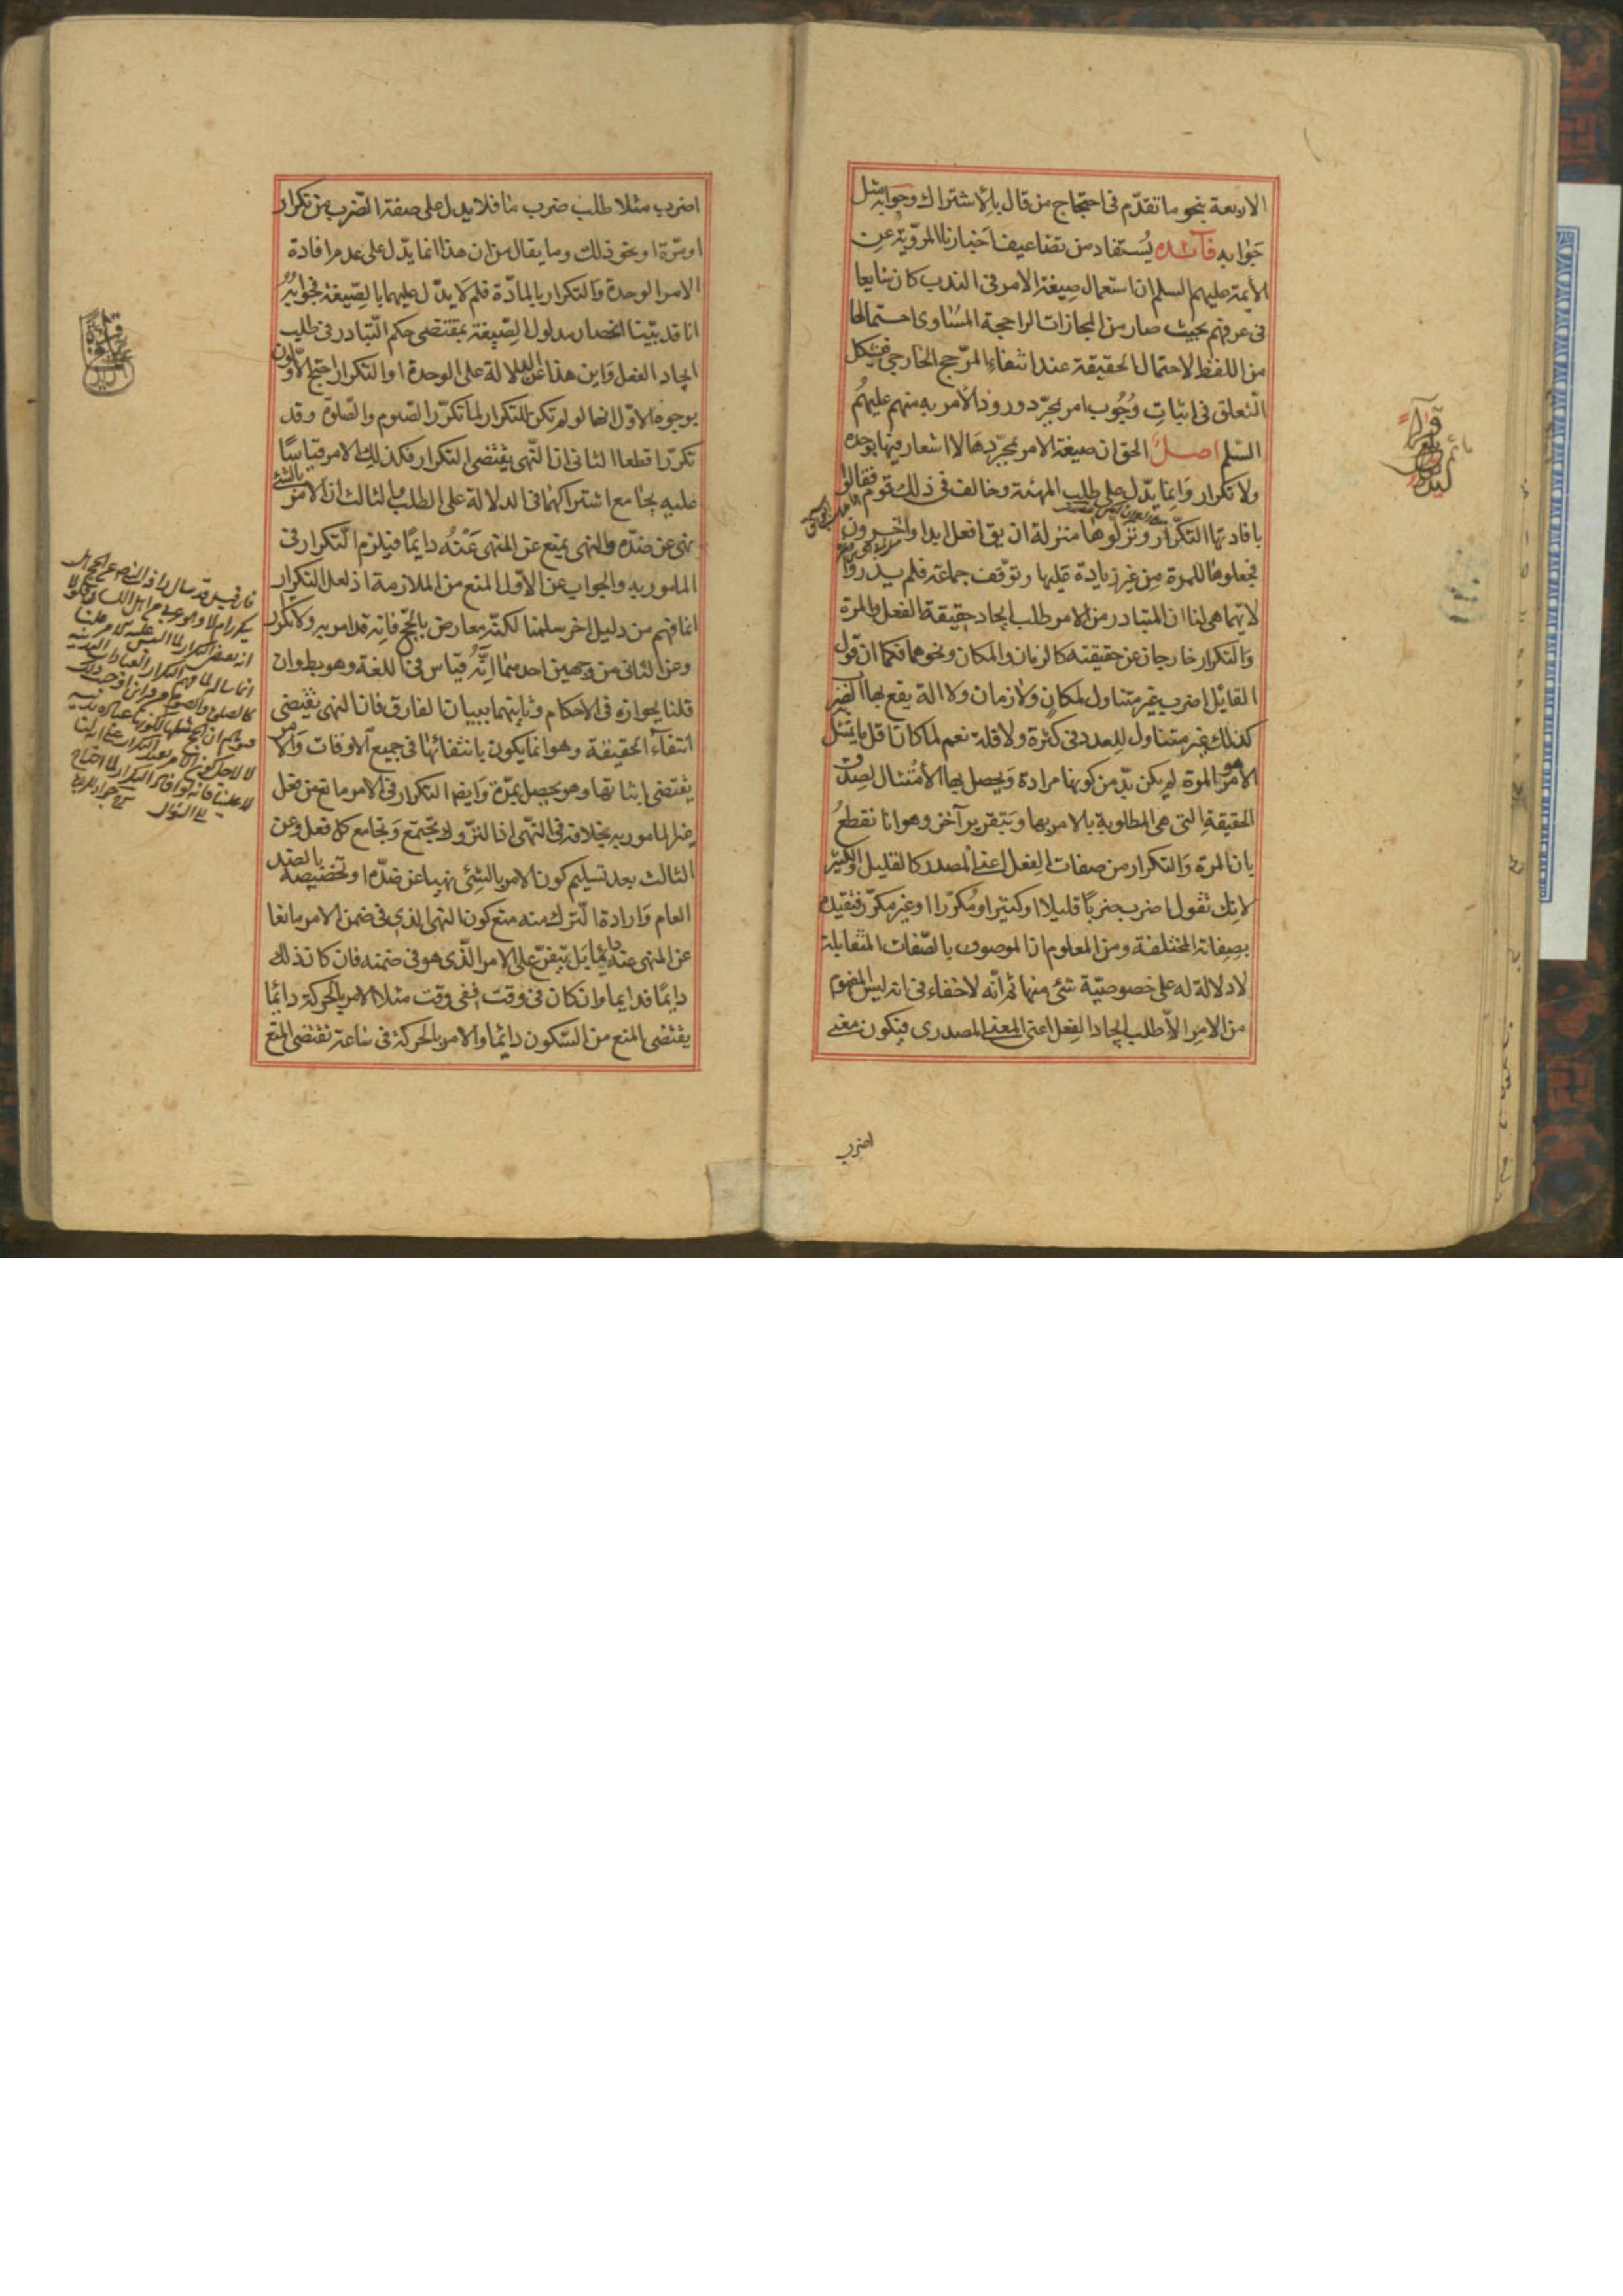 الاربعة بنحو ما تقدّم فى احتجاج من قال بالاشتراك وجوابه مثل
جوابه فائده يُستفاد من تضاعيف اخبارنا المرويّة عن
الأئمة عليهم السلم ان استعمال صيغة الامر فى الندب كان شايعا
فى عرفهم بحيث صار من المجازات الراجحة المساوى احتمالها
من اللفظ لاحتمال الحقيقة عند انتفاء المرّجح الخارجى فيشكل
التعلق فى اثبات وُجُوب امر بمجرّد ورود الأمر به منهم عليهمُ
السّلم اصل الحق ان صيغة الامر بمجرّدها لا اشعار فيها بوحدة
ولا تكرار وانما يدّل على طلب المهيّة وخالف فى ذلك قوم فقالوا
بافادتها التكرار ونزلوها منزلة ان يق افعل ابدا وآخرون
فجعلوها للمرة من غير زيادة عليها وتوّقف جماعة فلم يدروا
لايّهما هى لنا ان المتبادر من الامر طلب ايجاد حقيقة الفعل والمرة
والتكرار خارجان عن حقيقته كالزمان والمكان ونحوهما فكما ان قول
القائل اضرب غير متناول لمكان ولا زمان ولا الة يقع بها الضرب
كذلك غير متناول للعدد فى كثرة ولا قلة نعم لما كان اقل ما يمتثل به
الامر هو المرة لم يكن بدّ من كونها مرادة ويحصل بها الأمتثال لصدق
الحقيقة التى هى المطلوبة بالامر بها وبتقرير آخر وهو انا نقطعُ
بان المرة والتكرار من صفات الفعل اعنى المصدر كالقليل والكثير
لانك تقول اضرب ضربًا قليلا او كثيرا ومُكرّرا او غير مكرّر فتقيده
بصفاته المختلفة ومن المعلوم ان الموصوف بالصّفات المتقابلة
لا دلالة له على خصوصيّة شئ منها ثم انّه لا خفاء فى انه ليس المفهوم
من الامر الّا طلب ايجاد الفعل اعنى المعنى المصدرى فيكون معنى
اضرب
اضرب مثلا طلب ضرب ما فلا يدل على صفة الضرب من تكرار
او مرّة او نحو ذلك وما يقال من ان هذا انما يدّل على عدم افادة
الامر الوحدة والتكرار بالمادّة فلم لا يدّل عليهما بالصّيغة فجوابه
انا قد بيّنا انحصار مدلول الصّيغة بمقتضى حكم التّبادر فى طلب
ايجاد الفعل واين هذا عن الدلالة على الوحدة او التكرار احتج الاّولون
بوجوه الاوّل انها لو لم تكن للتكرار لما تكرّر الصّوم والصّلوة وقد
تكررّا قطعا الثانى ان النّهى يقتضى التكرار فكذلك الامر قياسًا
عليه بجامع اشتراكهما فى الدلالة على الطلب والثالث ان الامر بالشئ
نهى عن ضدّه والنهى يمنع عن المنهى عَنْهُ دايمًا فيلزم التّكرار فى
المامور به والجواب عن الاوّل المنع من الملازمة اذ لعل التكرار
انما فهم من دليل اخر سلمنا لكنّه معارض بالحجّ فانه قد امر به ولا تكرار
وعن الثانى من وجهين احدهما انّهُ قياس فى اللغة وهو بط وان
قلنا بجوازه فى الاحكام وثانيهما ببيان الفارق فان النهى يقتضى
انتفاء الحقيقة وهو انما يكون بانتفائها فى جميع الاوقات والامر
يقتضى اثباتها وهو يحصل بمرّة وايضا التكرار فى الامر مانع من فعل
غير المامور به بخلافه فى النّهى اذ التروك تجتمع وتجامع كل فعل وعن
الثالث بعد تسليم كون الامر بالشئ نهيا عن ضدّه او تخصيصه بالضد
العام وارادة التّرك منه منع كون النهى الذى فى ضمن الامر مانعا
عن المنهى عنه دائما بل يتفرّع على الامر الّذى هو فى ضمنه فان كان ذلك
دايمًا فدايما وان كان فى وقت ففى وقت مثلا الامر بالحركة دائما
يقتضى المنع من السّكون دائما والامر بالحركة فى ساعة تقتضى المنع